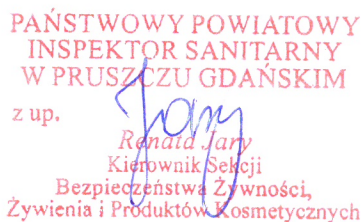 PAŃSTWOWY POWIATOWY
INSPEKTOR SANITARNY
W PRUSZCZU GDAŃSKIM
z up.
Renata Jary
Kierownik Sekcji
Bezpieczeństwa Żywności,
Żywienia i Produktów Kosmetycznych